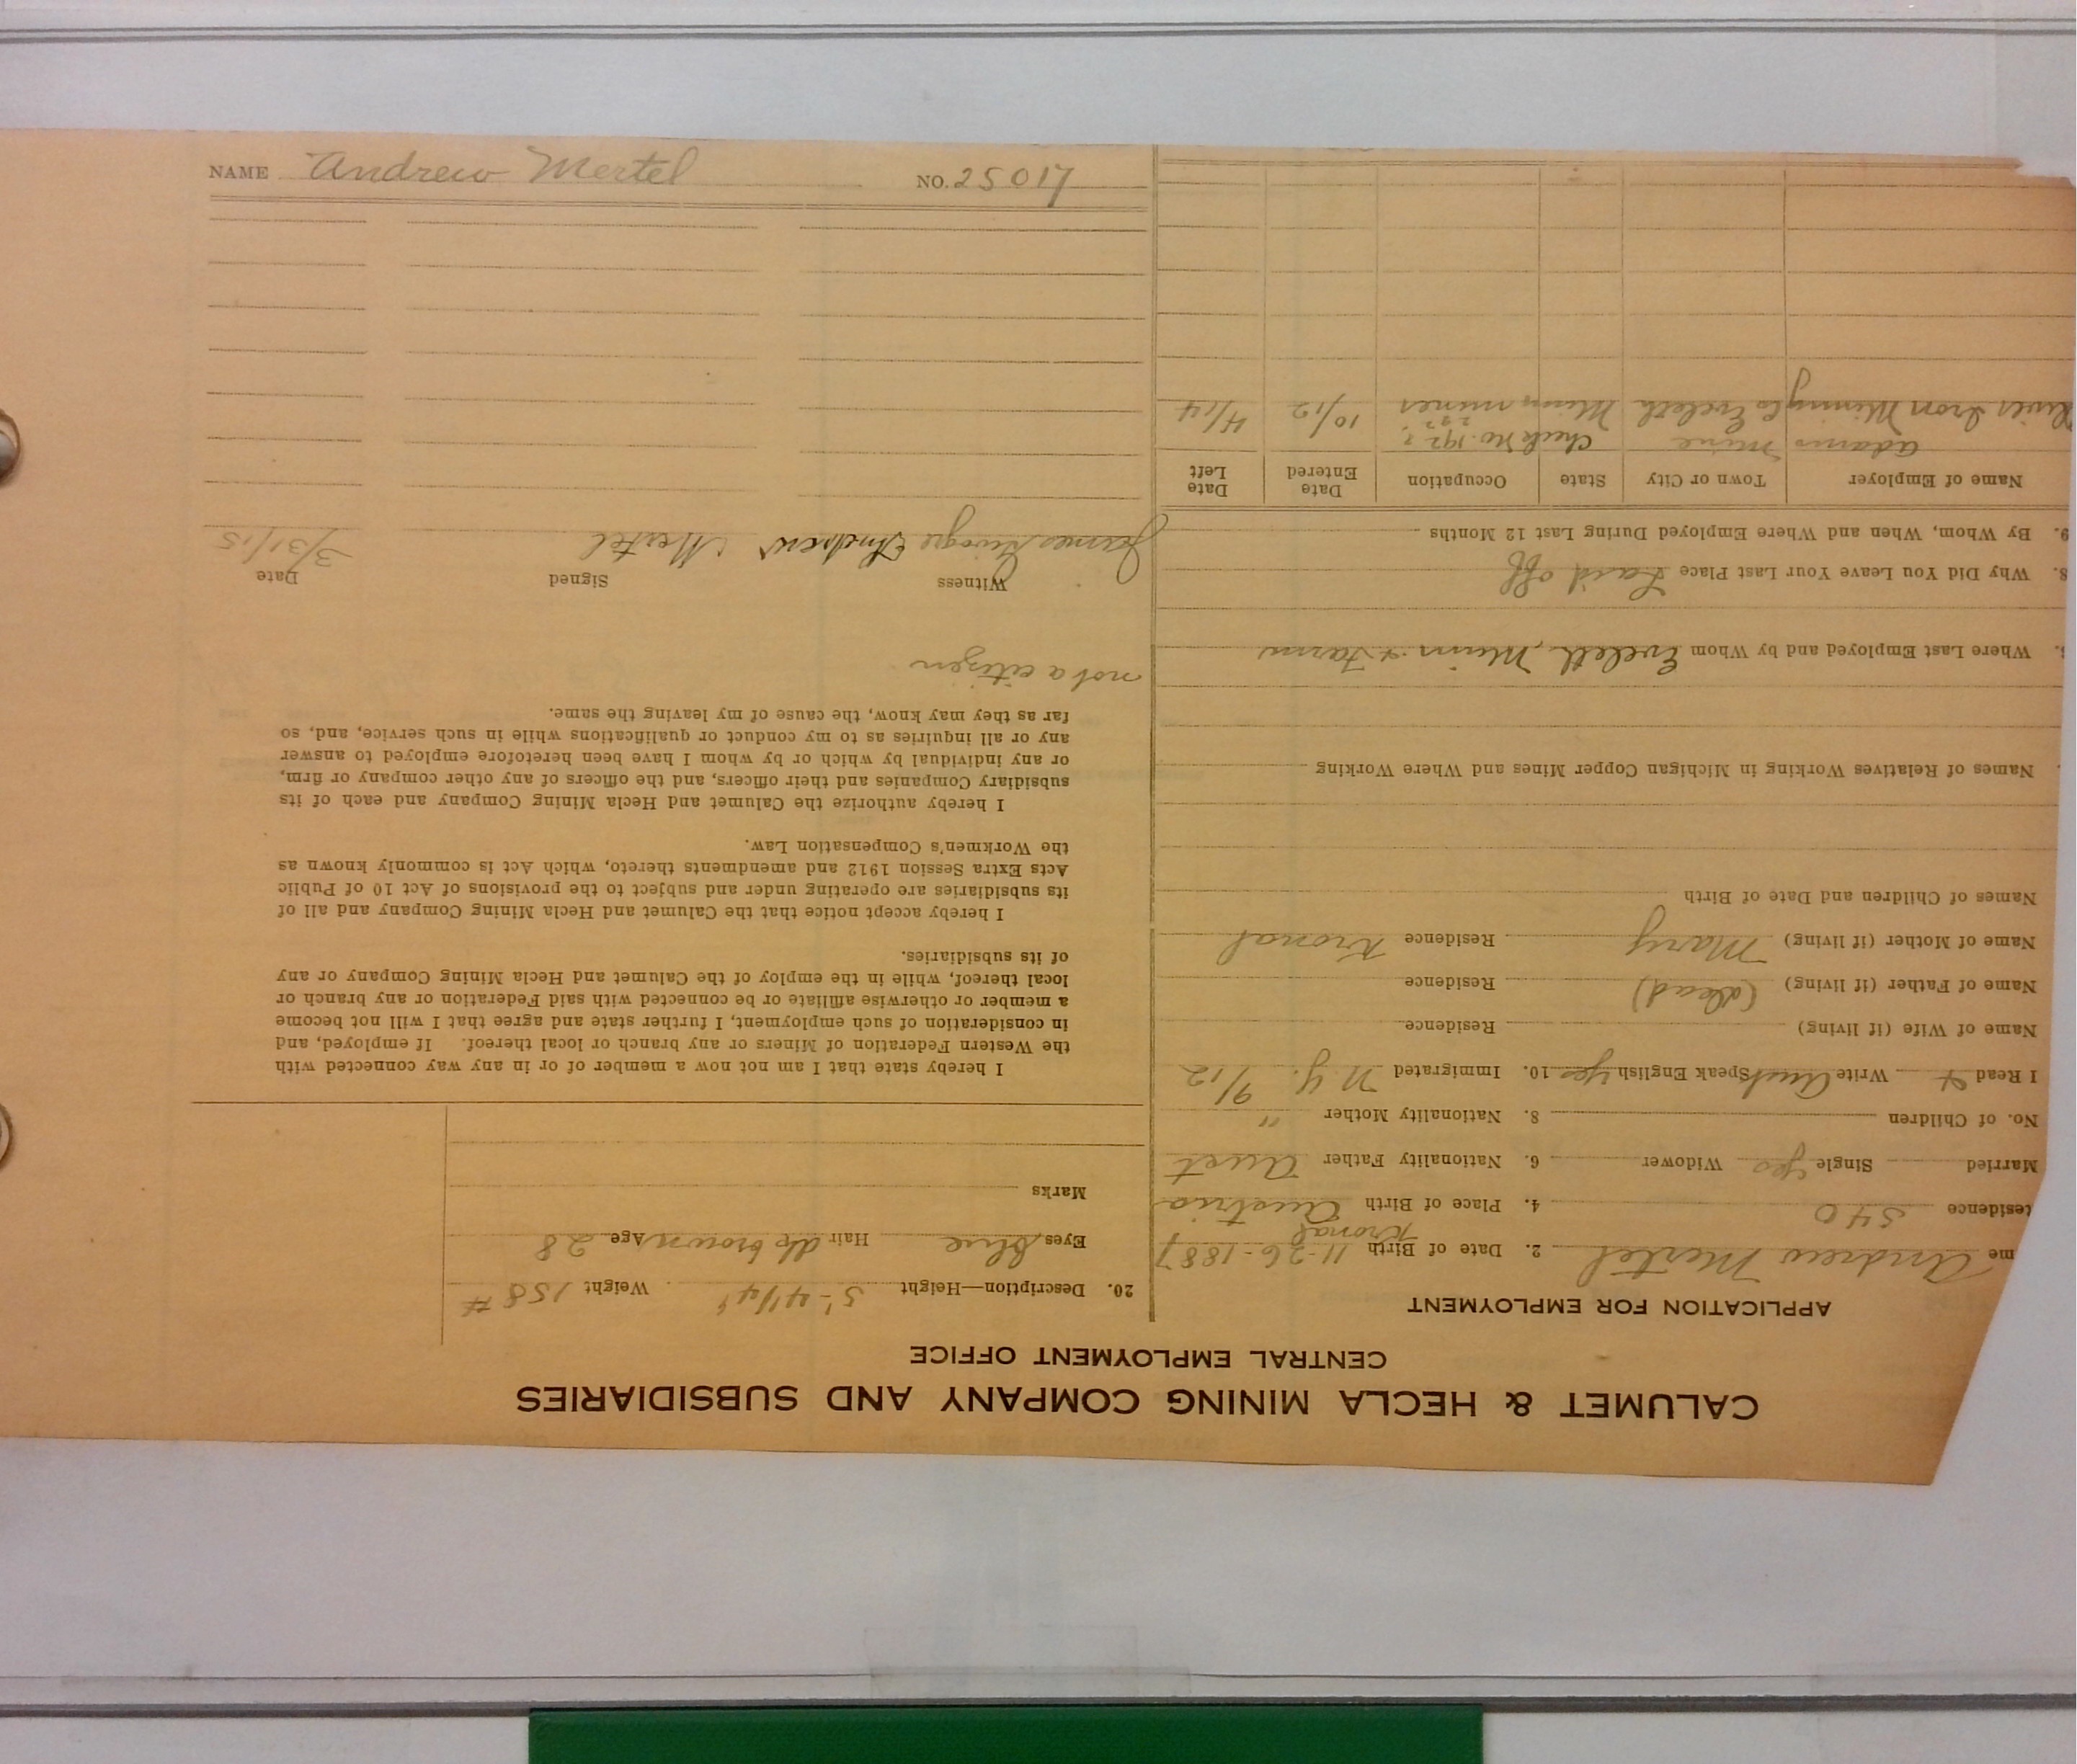 NAME Andrew Mertel NO. 25017
CALUMET & HECLA MINING COMPANY AND SUBSIDIARIES
CENTRAL EMPLOYMENT OFFICE
APPLICATION FOR EMPLOYMENT
me Andrew Mertel 2. Date of Birth 11-26-1887
Kronal
esidence 540 4. Place of Birth Austria
Married Single yes Widower 6. Nationality Father Aust
No. of Children 8. Nationality Mother "
I Read & Write Aust Speak English yes 10. Immigrated N.Y. 9/12
Name of Wife (if living) Residence
Name of Father (if living) (dead) Residence
Name of Mother (if living) Mary Residence Kronal
Names of Children and Date of Birth
Names of Relatives Working in Michigan Copper Mines and Where Working
Where Last Employed and by Whom Eveleth, Minn & Farm
8. Why Did You Leave Your Last Place Laid off
9. By Whom, When and Where Employed During Last 12 Months
Name of Employer Town or City State Occupation Date Entered Date Left
Adams Mine Check No. 192?
Iron Mining Co Eveleth Minn miner 10/12 4/14
20. Description—Height 5'-4 1/4" Weight 158#
Eyes blue Hair dk brown Age 28
Marks
I hereby state that I am not now a member of or in any way connected with
the Western Federation of Miners or any branch or local thereof. If employed, and
in consideration of such employment, I further state and agree that I will not become
a member or otherwise affiliate or be connected with said Federation or any branch or
local thereof, while in the employ of the Calumet and Hecla Mining Company or any
of its subsidiaries.
I hereby accept notice that the Calumet and Hecla Mining Company and all of
its subsidiaries are operating under and subject to the provisions of Act 10 of Public
Acts Extra Session 1912 and amendments thereto, which Act is commonly known as
the Workmen's Compensation Law.
I hereby authorize the Calumet and Hecla Mining Company and each of its
subsidiary Companies and their officers, and the officers of any other company or firm,
or any individual by which or by whom I have been heretofore employed to answer
any or all inquiries as to my conduct or qualifications while in such service, and, so
far as they may know, the cause of my leaving the same.
not a citizen
Witness Signed Date
James Andrew Mertel 3/31/15